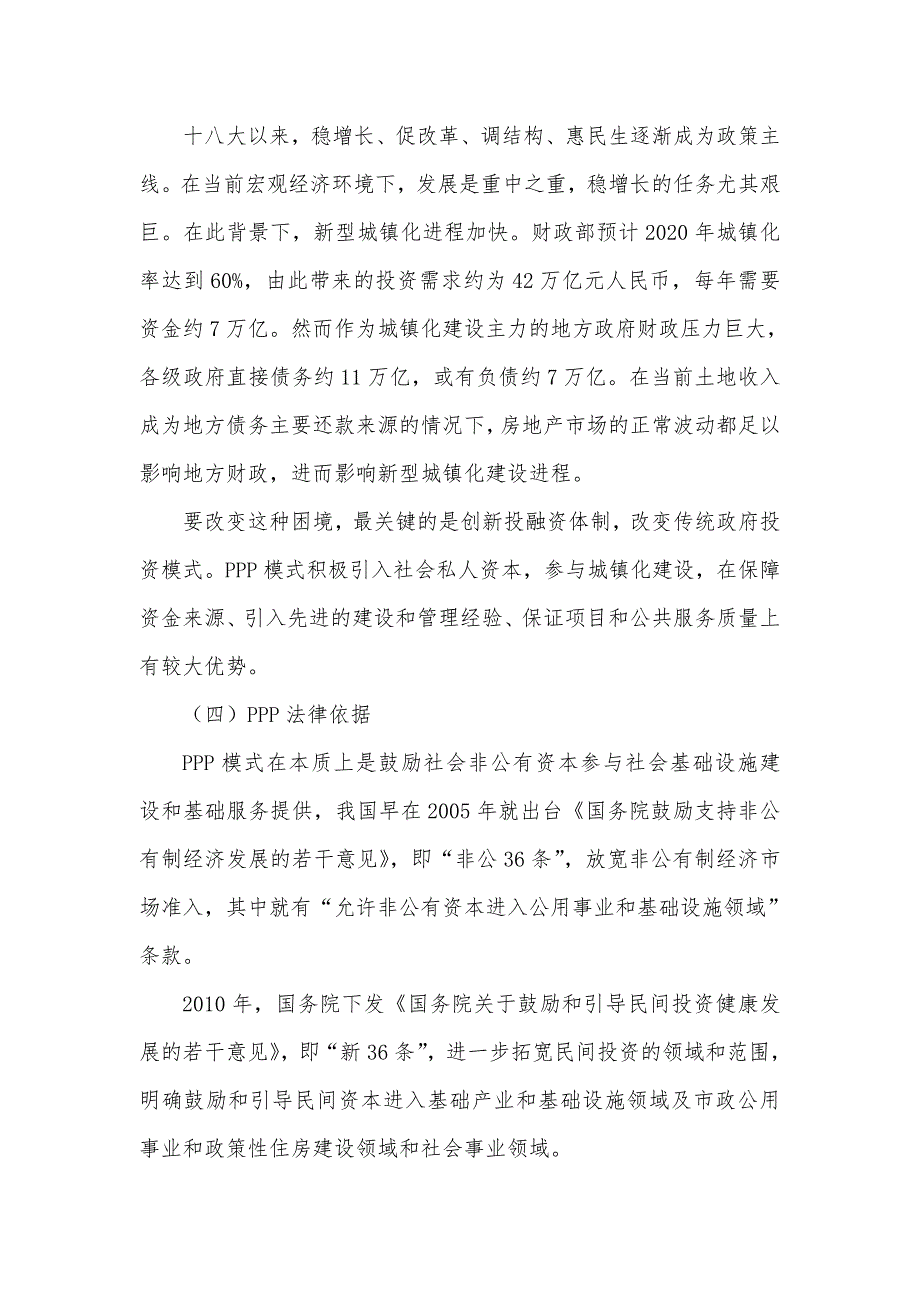 十八大以来，稳增长、促改革、调结构、惠民生逐渐成为政策主
线。在当前宏观经济环境下，发展是重中之重，稳增长的任务尤其艰
巨。在此背景下，新型城镇化进程加快。财政部预计 2020 年城镇化
率达到 60%，由此带来的投资需求约为 42 万亿元人民币，每年需要
资金约 7 万亿。然而作为城镇化建设主力的地方政府财政压力巨大，
各级政府直接债务约 11 万亿，或有负债约 7 万亿。在当前土地收入
成为地方债务主要还款来源的情况下，房地产市场的正常波动都足以
影响地方财政，进而影响新型城镇化建设进程。
要改变这种困境，最关键的是创新投融资体制，改变传统政府投
资模式。PPP 模式积极引入社会私人资本，参与城镇化建设，在保障
资金来源、引入先进的建设和管理经验、保证项目和公共服务质量上
有较大优势。
（四）PPP 法律依据
PPP 模式在本质上是鼓励社会非公有资本参与社会基础设施建
设和基础服务提供，我国早在 2005 年就出台《国务院鼓励支持非公
有制经济发展的若干意见》，即“非公 36 条”，放宽非公有制经济市
场准入，其中就有“允许非公有资本进入公用事业和基础设施领域”
条款。
2010 年，国务院下发《国务院关于鼓励和引导民间投资健康发
展的若干意见》，即“新 36 条”，进一步拓宽民间投资的领域和范围，
明确鼓励和引导民间资本进入基础产业和基础设施领域及市政公用
事业和政策性住房建设领域和社会事业领域。